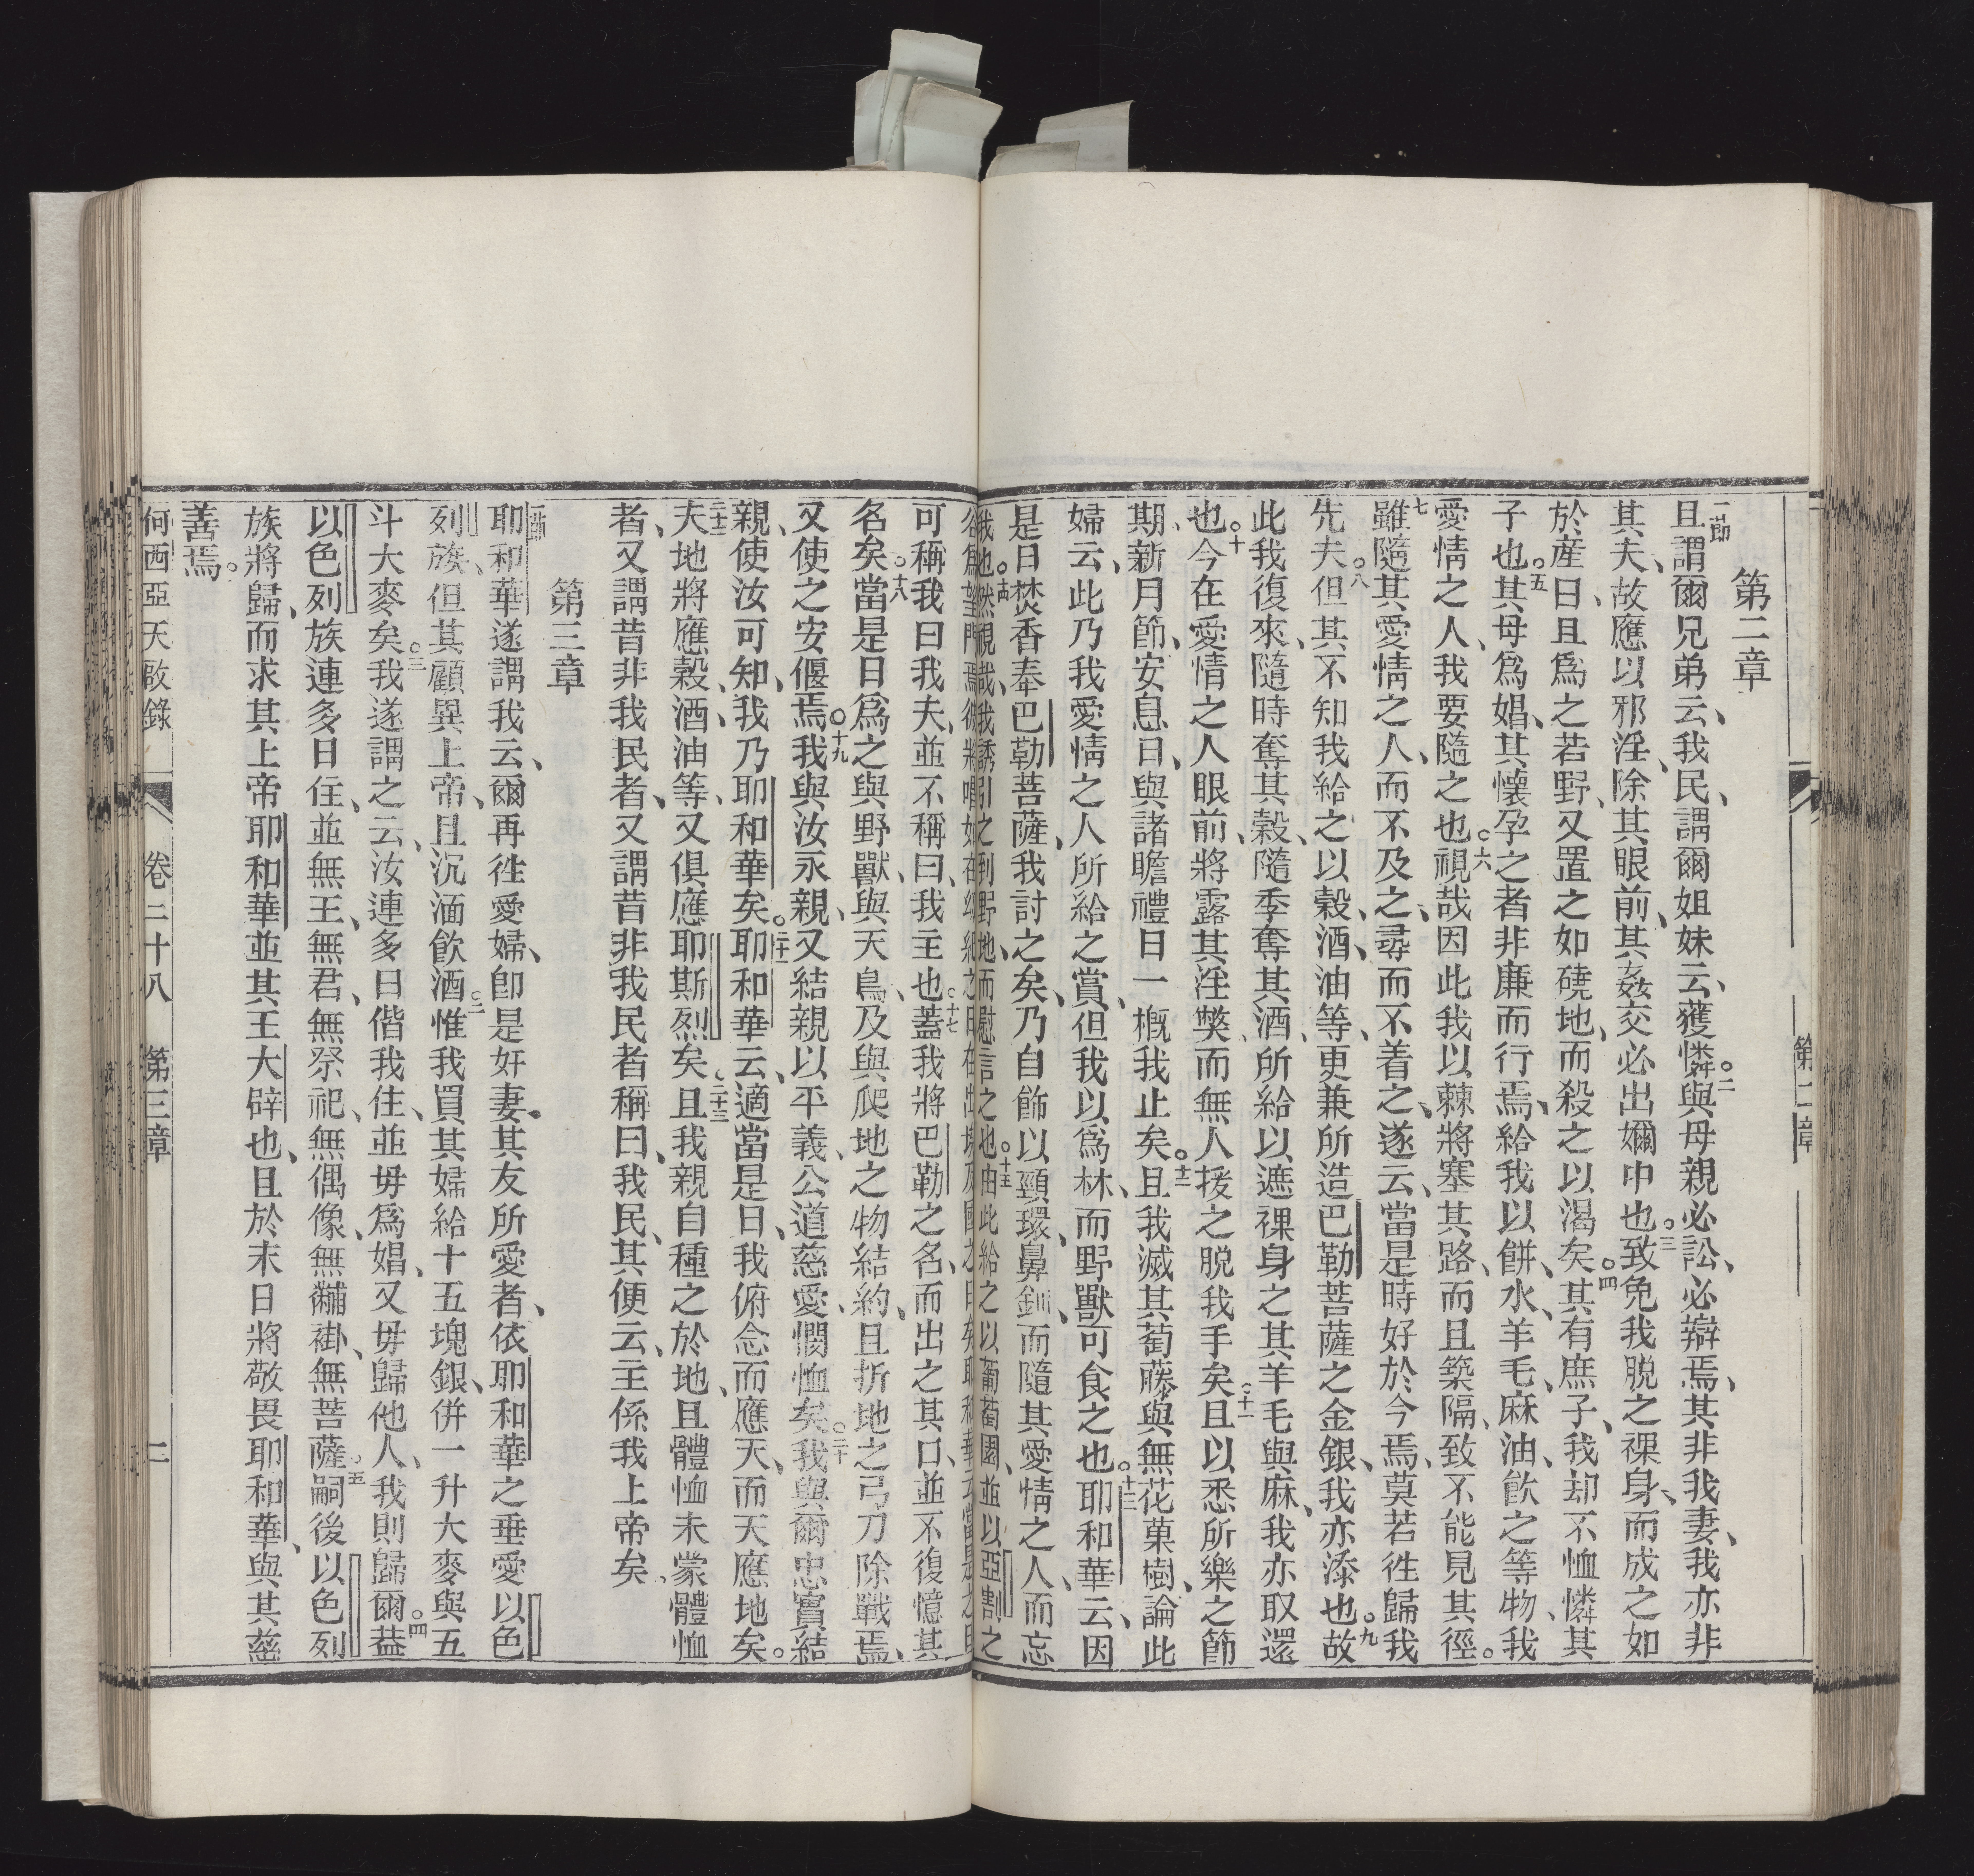 第二章
一節且謂爾兄弟云、我民、謂爾姐妹云、獲憐。○二與母親必訟、必辯焉、其非我妻、我亦非
其夫、故應以邪淫、除其眼前、其姦交必出嬭巾也○三致免我脫之祼身、而成之如
於產日、且為之若野、又置之如磽地、而殺之以渴矣○四其有庶子、我却不恤憐其
子也○五其母爲娼、其懷孕之者非廉而行焉、給我以餅、水、羊毛、麻、油、飲之等物、我
愛情之人、我要隨之也○六視哉因此我以棘將塞其路、而且築隔、致不能見其徑。
七雖隨其愛情之人、而不及之、尋而不着之、遂云、當是時好於今焉、莫若徃歸我
先夫○八但其不知我給之以穀、酒、油等、更兼所造巴勒菩薩之金銀、我亦添也○九故
此我復來、隨時奪其穀、隨季奪其酒、所給以遮祼身之其羊毛與麻、我亦取還
也○十今在愛情之人眼前、將露其淫獘、而無人援之脫我手矣○十一且以悉所樂之節
期、新月節、安息日、與諸瞻禮日一概我止矣○十二且我滅其萄藤與無花菓樹、論此
婦云、此乃我愛情之人所給之賞、但我以爲林、而野獸可食之也○十三耶和華云、因
是日焚香奉巴勒菩薩、我討之矣、乃自飾以頸環、鼻釧、而隨其愛情之人、而忘
我也○十四然視哉、我誘引之到野地、而慰言之也○十五由此給之以葡萄園、並以亞割之
可稱我曰我夫、並不稱曰、我主也○十七蓋我將巴勒之名、而出之其口、並不復憶其
名矣○十八當是日爲之與野獸、與天鳥、及與爬地之物結約、且折地之弓刀除戰焉、
又使之安偃焉○十九我與汝永親、又結親以平義、公道慈愛、憫恤矣○二十我與爾忠實結
親、使汝可知、我乃耶和華矣。二十一耶和華云、適當是日、我俯念而應天、而天應地矣。
二十二夫地將應穀、酒、油等、又俱應耶斯烈矣○二十三且我親自種之於地、且體恤未蒙體恤
者、又謂昔非我民者、又謂昔非我民者稱曰、我民、其便云、主係我上帝矣、
第三章
一節耶和華遂謂我云、爾再徃愛婦、卽是奸妻。其友所愛者、依耶和華之垂愛以色
列族、但其顧異上帝、且沉湎飲酒○二惟我買其婦給十五塊銀、併一升大麥與五
斗大麥矣○三我遂謂之云、汝連多日偕我住、並毋爲娼、又毋歸他人、我則歸爾○四葢
以色列族連多日住、並無王、無君、無祭祀、無偶像、無黼褂、無菩薩○五嗣後以色列
族將歸、而求其上帝耶和華並其王大辟也、且於末日將敬畏耶和華、與其慈
善焉。
何西亞天啟錄 卷二十八 第三章 二